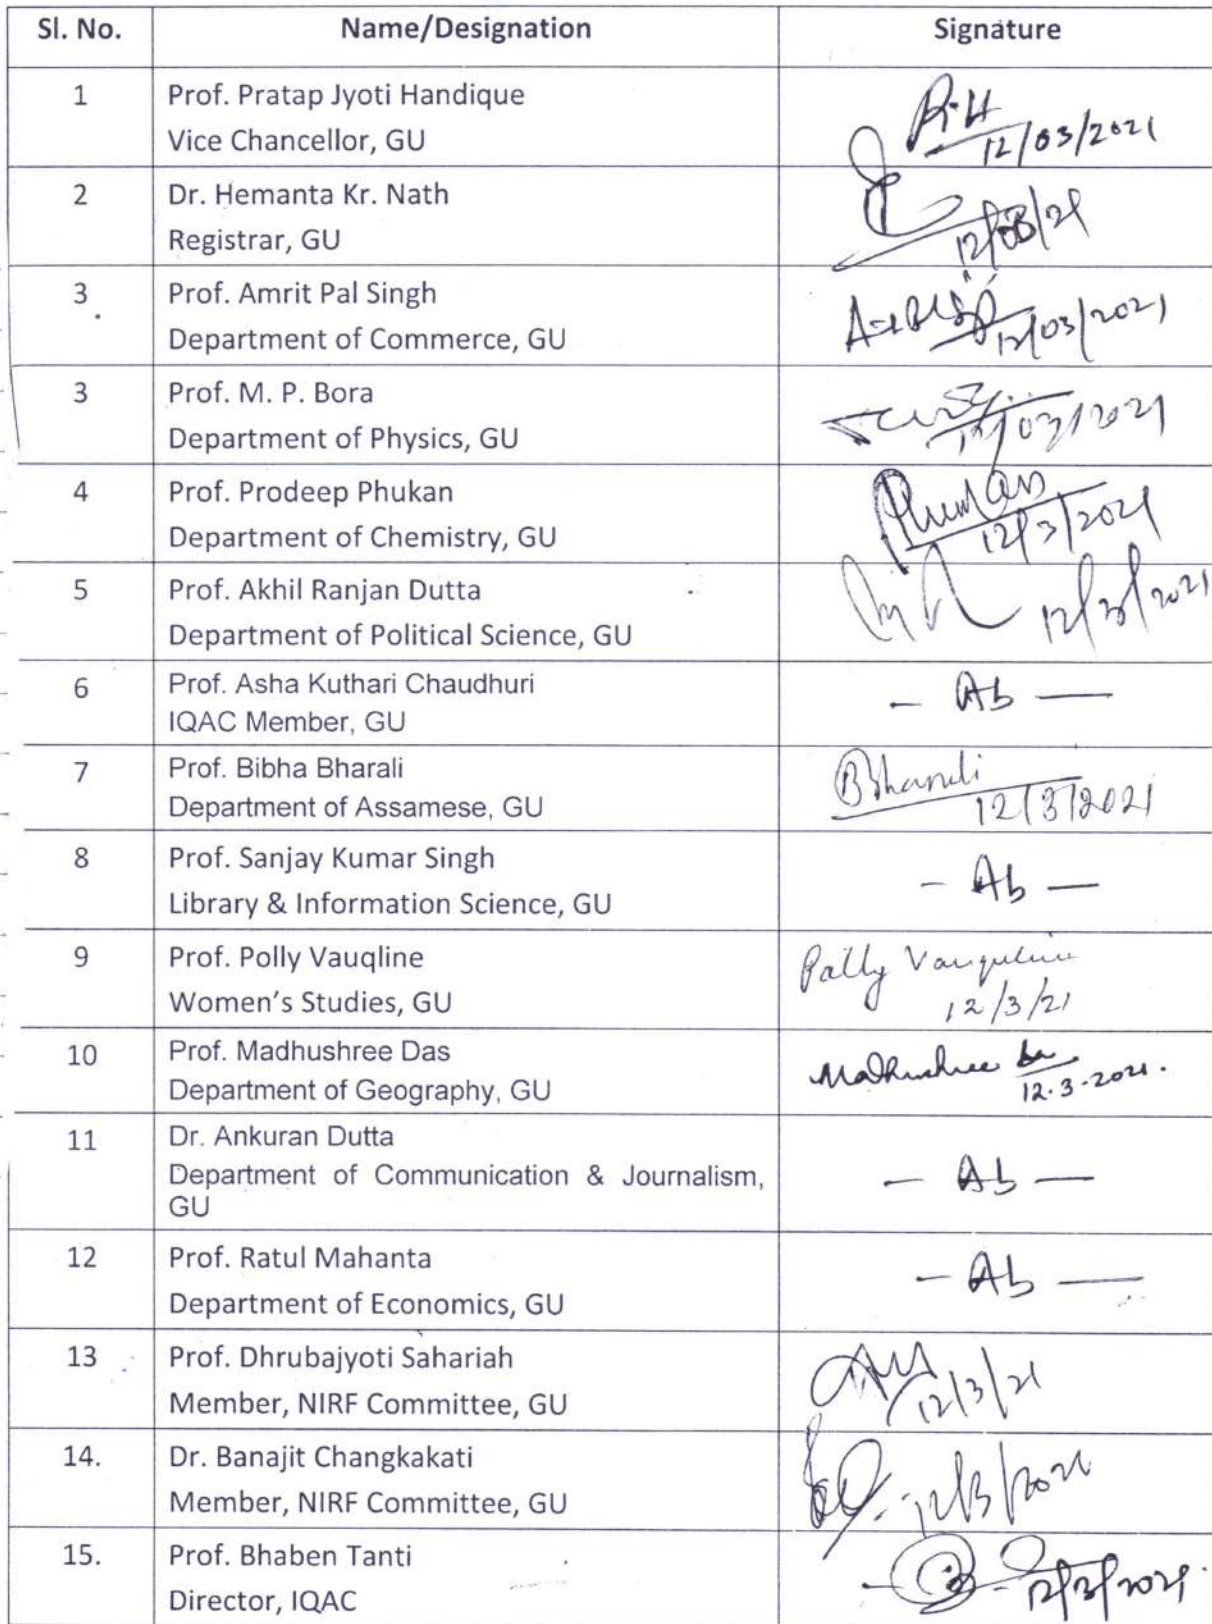 Sl. No. Name/Designation Signature
1 Prof. Pratap Jyoti Handique
Vice Chancellor, GU
12/03/2021
2 Dr. Hemanta Kr. Nath
Registrar, GU
12/03/21
3 Prof. Amrit Pal Singh
Department of Commerce, GU
12/03/2021
3 Prof. M. P. Bora
Department of Physics, GU
12/03/2021
4 Prof. Prodeep Phukan
Department of Chemistry, GU
Phukan
12/3/2021
5 Prof. Akhil Ranjan Dutta
Department of Political Science, GU
12/3/2021
6 Prof. Asha Kuthari Chaudhuri
IQAC Member, GU
- Ab -
7 Prof. Bibha Bharali
Department of Assamese, GU
BBharali
12/3/2021
8 Prof. Sanjay Kumar Singh
Library & Information Science, GU
- Ab -
9 Prof. Polly Vauqline
Women's Studies, GU
Polly Vauquline
12/3/21
10 Prof. Madhushree Das
Department of Geography, GU
Madhushree Das
12.3.2021.
11 Dr. Ankuran Dutta
Department of Communication & Journalism,
GU
- Ab -
12 Prof. Ratul Mahanta
Department of Economics, GU
- Ab -
13 Prof. Dhrubajyoti Sahariah
Member, NIRF Committee, GU
12/3/21
14. Dr. Banajit Changkakati
Member, NIRF Committee, GU
12/3/2021
15. Prof. Bhaben Tanti
Director, IQAC
12/3/2021.